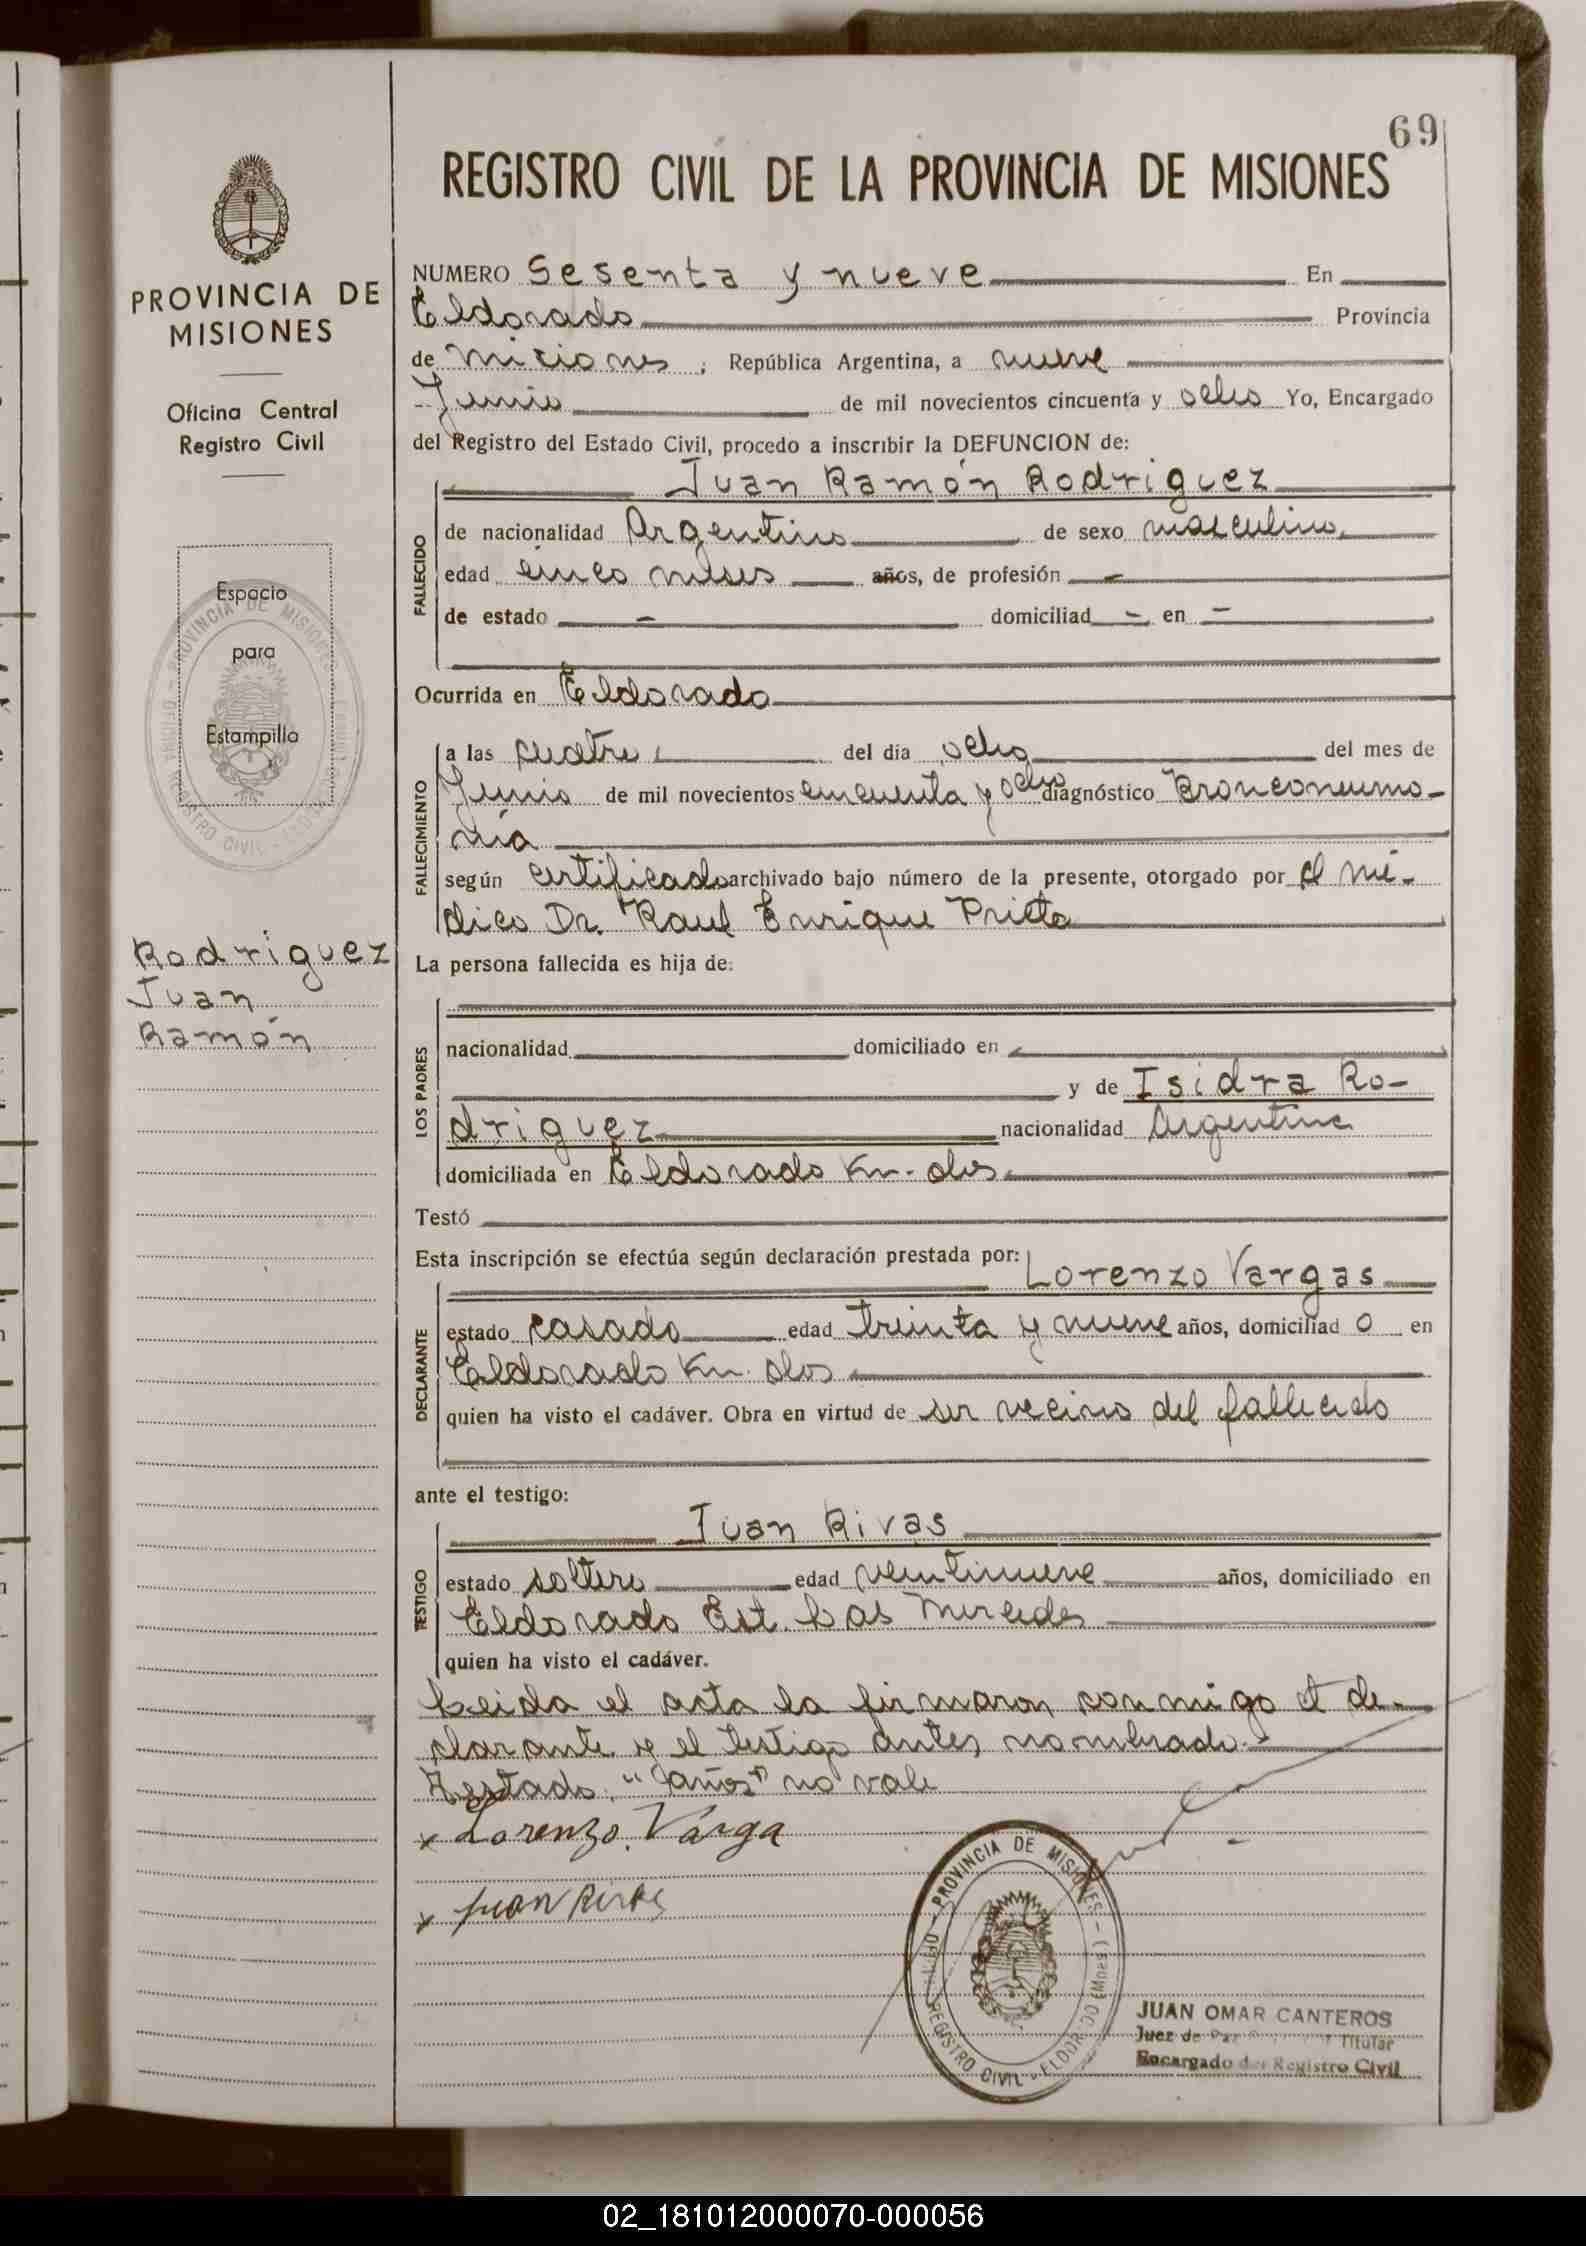 69
REGISTRO CIVIL DE LA PROVINCIA DE MISIONES
PROVINCIA DE
MISIONES
Oficina Central
Registro Civil
Espacio
para
Estampilla
Rodriguez
Juan
Ramón
NUMERO Sesenta y nueve En
Eldorado Provincia
de Misiones, República Argentina, a nueve
Junio de mil novecientos cincuenta y ocho Yo, Encargado
del Registro del Estado Civil, procedo a inscribir la DEFUNCION de:
FALLECIDO
Juan Ramón Rodriguez
de nacionalidad Argentino de sexo masculino,
edad cinco meses años, de profesión -
de estado - domiciliad - en -
Ocurrida en Eldorado
FALLECIMIENTO
a las cuatro, del día ocho del mes de
Junio de mil novecientos cincuenta y ocho diagnóstico Bronconeumo-
nía
según certificado archivado bajo número de la presente, otorgado por el mé-
dico Dr. Raul Enrique Prieto
La persona fallecida es hija de:
LOS PADRES
nacionalidad domiciliado en
y de Isidra Ro-
driguez nacionalidad Argentina
domiciliada en Eldorado Km. dos.
Testó
Esta inscripción se efectúa según declaración prestada por:
DECLARANTE
Lorenzo Vargas
estado casado edad treinta y nueve años, domiciliad o en
Eldorado Km. dos
quien ha visto el cadáver. Obra en virtud de ser vecino del fallecido
ante el testigo:
TESTIGO
Juan Rivas
estado soltero edad veintinueve años, domiciliado en
Eldorado Est. Las Mercedes
quien ha visto el cadáver.
Leida el acta la firmaron conmigo el de-
clarante y el testigo antes nombrado.-
Testado: "años" no vale
x Lorenzo Varga
x Juan Rivas
PROVINCIA DE MISIONES
REGISTRO CIVIL - ELDORADO (Mnes)
JUAN OMAR CANTEROS
Juez de Paz Titular
Encargado del Registro Civil
02_181012000070-000056